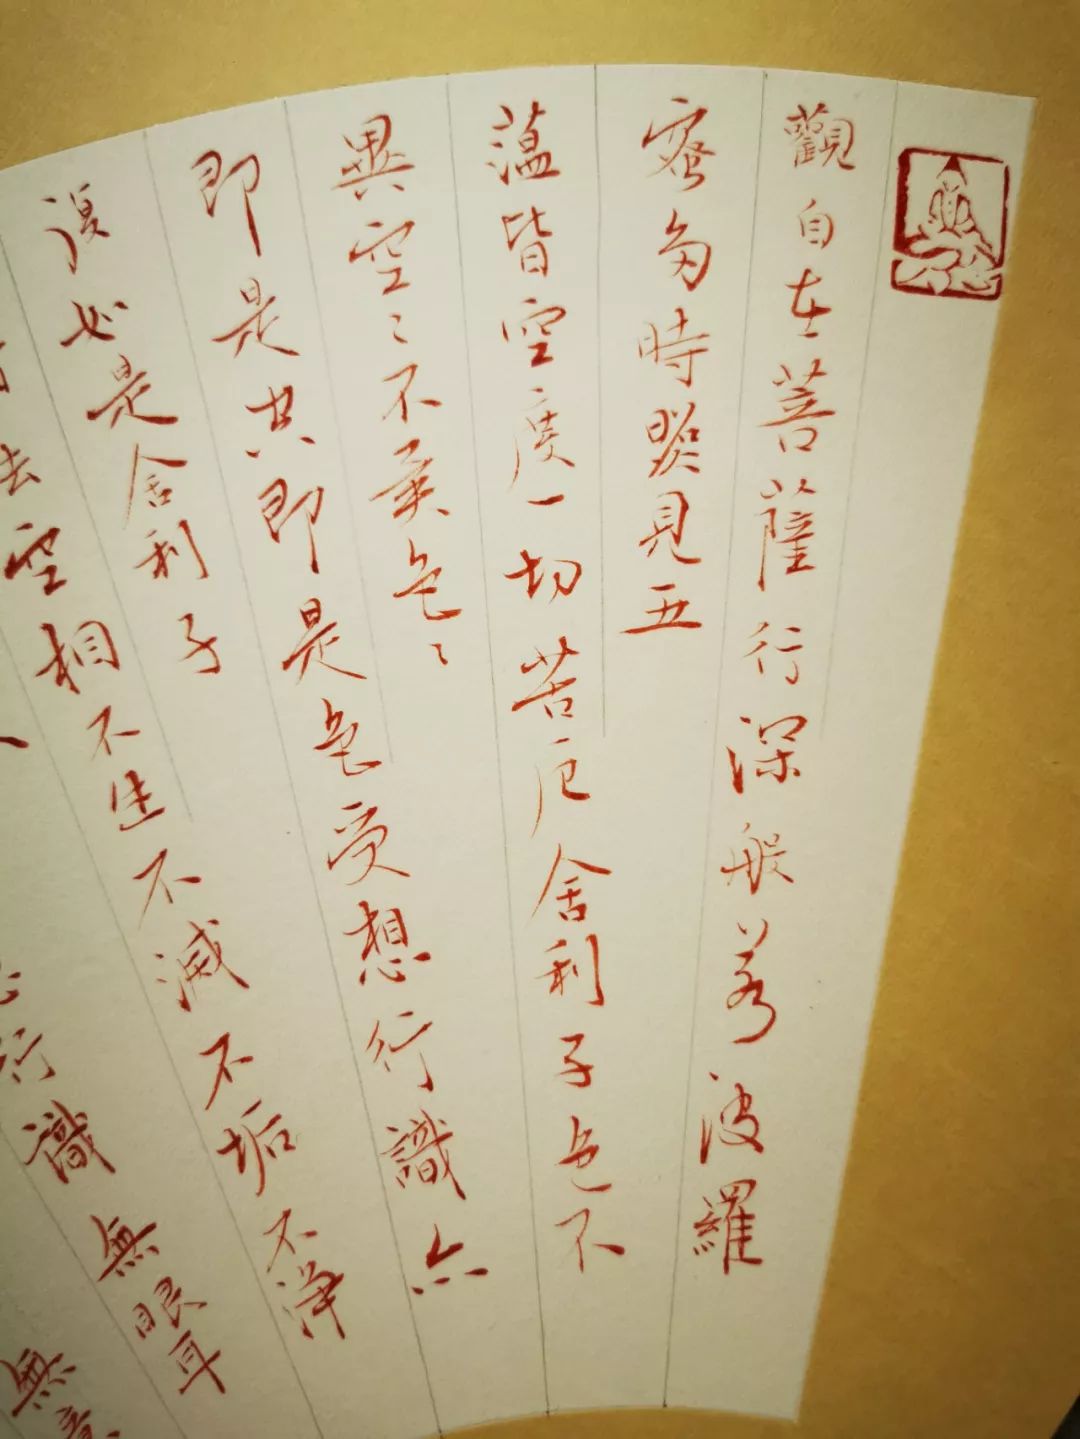 觀自在菩薩行深般若波羅
蜜多時照見五
薀皆空度一切苦厄舍利子色不
異空〻不異色〻
即是空即是色受想行識亦
復如是舍利子
法空相不生不滅不垢不淨
行識無眼耳
無意